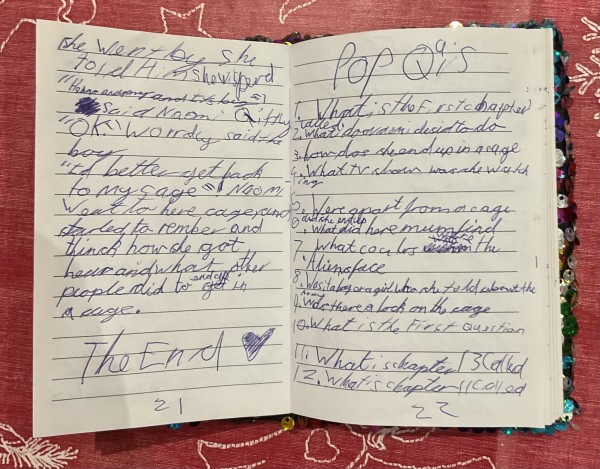 she went by she
told Him she wisperd
Said Naomi Qiftly
"OK" Worrdey said the
boy
"I'd better get back
to my cage" Naomi
Went to here cage and
started to rember and
thinck how she got
heur and what other
people did to end up in
a cage.
The End
21
Pop Qis
1. What is the First chapter
called
2. What do naomi decid to do
3. how dos she end up in a cage
4. What TV show was she watch
ing
5. Were apart from a cage
did she end up
6. What did here mum find
7. What coulos were on the
Aliens face
8. Was it a boy or a girl who she told about the
9. Was there a lock on the cage
10. What is the First Question
11. What is chapter 13 Called
12. What is chapter 11 Called
22